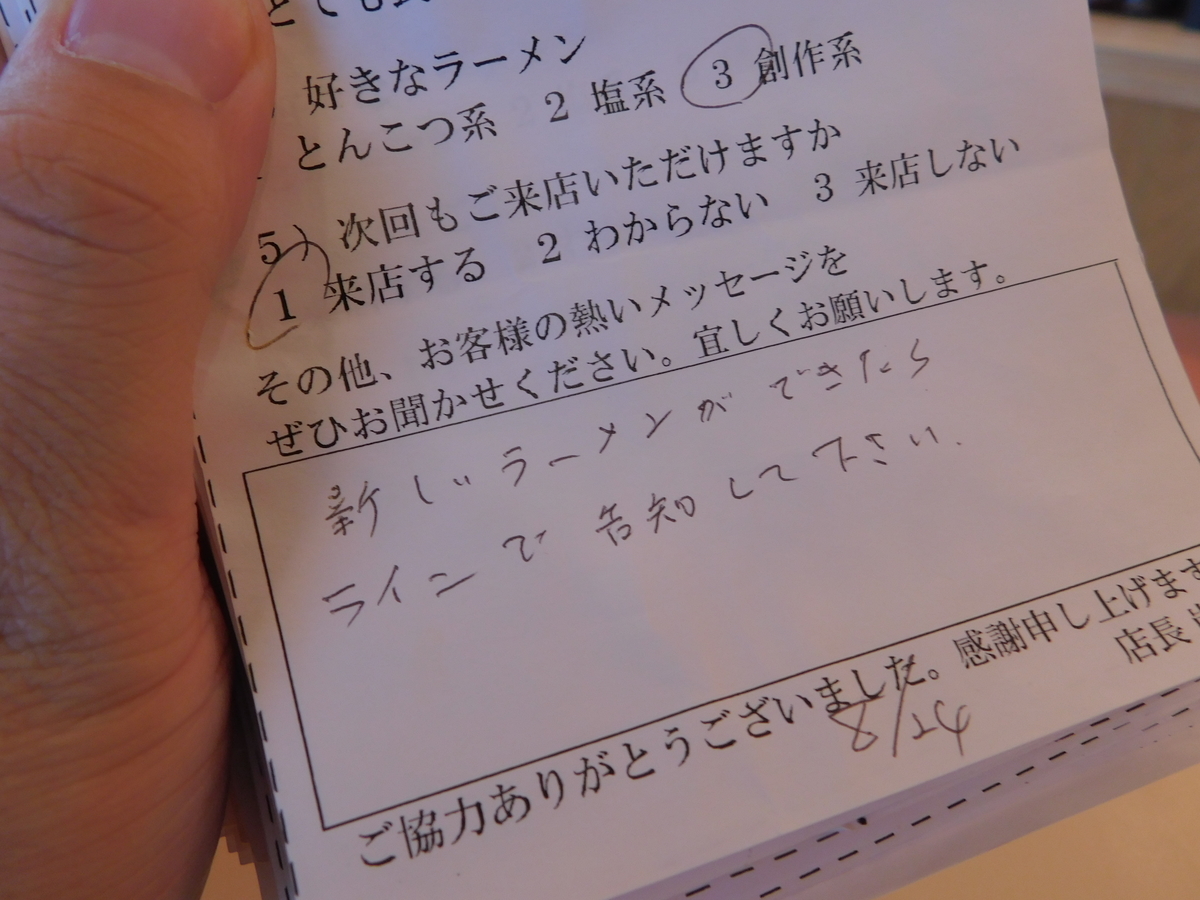 好きなラーメン
とんこつ系 2 塩系 3 創作系
5) 次回もご来店いただけますか
1 来店する 2 わからない 3 来店しない
その他、お客様の熱いメッセージを
ぜひお聞かせください。宜しくお願いします。
新しいラーメンができたら
ラインで告知して下さい.
ご協力ありがとうございました。感謝申し上げます
店長
8/24